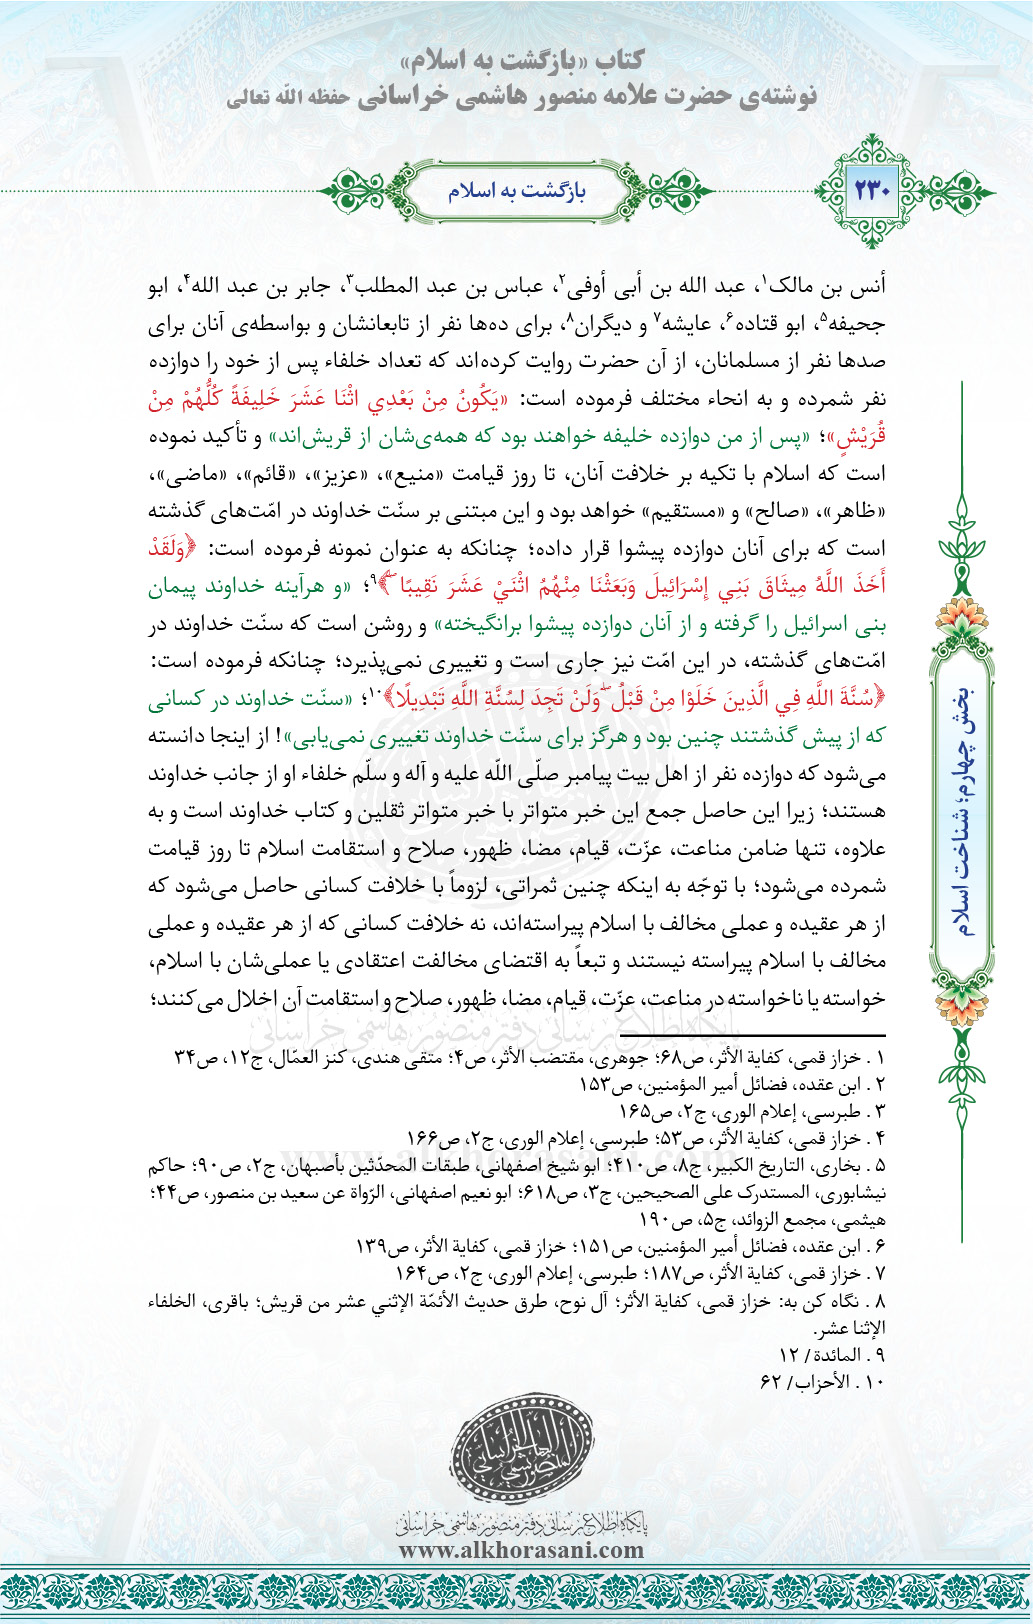 کتاب «بازگشت به اسلام»
نوشته‌ی حضرت علامه منصور هاشمی خراسانی حفظه الله تعالی
۲۳۰
بازگشت به اسلام
أنس بن مالک۱، عبد الله بن أبی أوفی۲، عباس بن عبد المطلب۳، جابر بن عبد الله۴، ابو
جحیفه۵، ابو قتاده۶، عایشه۷ و دیگران۸، برای ده‌ها نفر از تابعانشان و بواسطه‌ی آنان برای
صدها نفر از مسلمانان، از آن حضرت روایت کرده‌اند که تعداد خلفاء پس از خود را دوازده
نفر شمرده و به انحاء مختلف فرموده است: «يَكُونُ مِنْ بَعْدِي اثْنَا عَشَرَ خَلِيفَةً كُلُّهُمْ مِنْ
قُرَيْشٍ»؛ «پس از من دوازده خلیفه خواهند بود که همه‌ی‌شان از قریش‌اند» و تأکید نموده
است که اسلام با تکیه بر خلافت آنان، تا روز قیامت «منیع»، «عزیز»، «قائم»، «ماضی»،
«ظاهر»، «صالح» و «مستقیم» خواهد بود و این مبتنی بر سنّت خداوند در امّت‌های گذشته
است که برای آنان دوازده پیشوا قرار داده؛ چنانکه به عنوان نمونه فرموده است: ﴿وَلَقَدْ
أَخَذَ اللَّهُ مِيثَاقَ بَنِي إِسْرَائِيلَ وَبَعَثْنَا مِنْهُمُ اثْنَيْ عَشَرَ نَقِيبًا ۖ﴾۹؛ «و هرآینه خداوند پیمان
بنی اسرائیل را گرفته و از آنان دوازده پیشوا برانگیخته» و روشن است که سنّت خداوند در
امّت‌های گذشته، در این امّت نیز جاری است و تغییری نمی‌پذیرد؛ چنانکه فرموده است:
﴿سُنَّةَ اللَّهِ فِي الَّذِينَ خَلَوْا مِنْ قَبْلُ ۖ وَلَنْ تَجِدَ لِسُنَّةِ اللَّهِ تَبْدِيلًا﴾۱۰؛ «سنّت خداوند در کسانی
که از پیش گذشتند چنین بود و هرگز برای سنّت خداوند تغییری نمی‌یابی»! از اینجا دانسته
می‌شود که دوازده نفر از اهل بیت پیامبر صلّی اللّه علیه و آله و سلّم خلفاء او از جانب خداوند
هستند؛ زیرا این حاصل جمع این خبر متواتر با خبر متواتر ثقلین و کتاب خداوند است و به
علاوه، تنها ضامن مناعت، عزّت، قیام، مضا، ظهور، صلاح و استقامت اسلام تا روز قیامت
شمرده می‌شود؛ با توجّه به اینکه چنین ثمراتی، لزوماً با خلافت کسانی حاصل می‌شود که
از هر عقیده و عملی مخالف با اسلام پیراسته‌اند، نه خلافت کسانی که از هر عقیده و عملی
مخالف با اسلام پیراسته نیستند و تبعاً به اقتضای مخالفت اعتقادی یا عملی‌شان با اسلام،
خواسته یا ناخواسته در مناعت، عزّت، قیام، مضا، ظهور، صلاح و استقامت آن اخلال می‌کنند؛
بخش چهارم؛ شناخت اسلام
۱ . خزاز قمی، کفایة الأثر، ص۶۸؛ جوهری، مقتضب الأثر، ص۴؛ متقی هندی، کنز العمّال، ج۱۲، ص۳۴
۲ . ابن عقده، فضائل أمیر المؤمنین، ص۱۵۳
۳ . طبرسی، إعلام الوری، ج۲، ص۱۶۵
۴ . خزاز قمی، کفایة الأثر، ص۵۳؛ طبرسی، إعلام الوری، ج۲، ص۱۶۶
۵ . بخاری، التاریخ الکبیر، ج۸، ص۴۱۰؛ ابو شیخ اصفهانی، طبقات المحدّثین بأصبهان، ج۲، ص۹۰؛ حاکم
نیشابوری، المستدرک علی الصحیحین، ج۳، ص۶۱۸؛ ابو نعیم اصفهانی، الرّواة عن سعید بن منصور، ص۴۴؛
هیثمی، مجمع الزوائد، ج۵، ص۱۹۰
۶ . ابن عقده، فضائل أمیر المؤمنین، ص۱۵۱؛ خزاز قمی، کفایة الأثر، ص۱۳۹
۷ . خزاز قمی، کفایة الأثر، ص۱۸۷؛ طبرسی، إعلام الوری، ج۲، ص۱۶۴
۸ . نگاه کن به: خزاز قمی، کفایة الأثر؛ آل نوح، طرق حدیث الأئمّة الإثني عشر من قریش؛ باقری، الخلفاء
الإثنا عشر.
۹ . المائدة/ ۱۲
۱۰ . الأحزاب/ ۶۲
پایگاه اطلاع‌رسانی دفتر منصور هاشمی خراسانی
www.alkhorasani.com